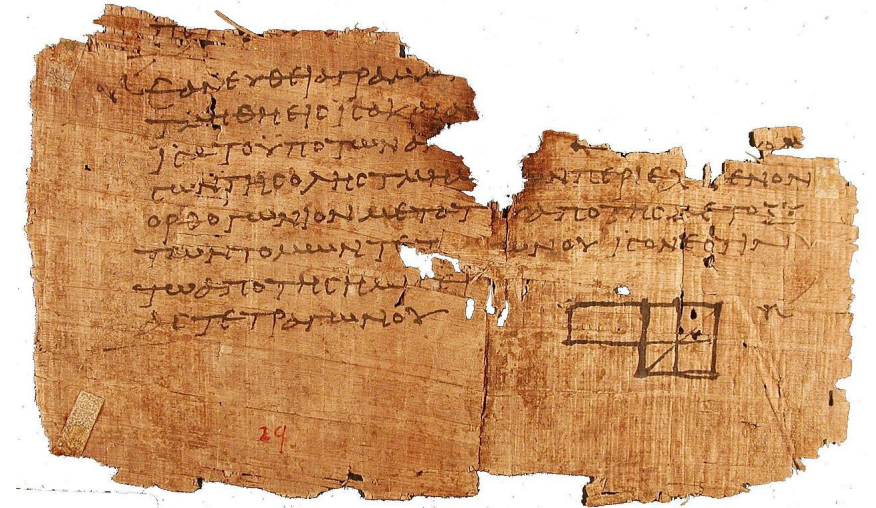 ΕΑΝΕΥΘΕΙΑΓΡΑΜΜ
ΤΜΗΘΗΕΙϹΙϹΑΚΑΙΑ
ΙϹΑΤΟΥΠΟΤΩΝΑ
ϹΩΝΤΗϹΟΛΗϹΤΜΗΜ ΩΝΠΕΡΙΕΧ ΜΕΝΟΝ
ΟΡΘΟΓΩΝΙΟΝΜΕΤΟΤ ΑΠΟΤΗϹΜΕΤΟΞΥ
ΤΩΝΤΟΜΩΝΤΕΤ ΩΝΟΥΙϹΟΝΕϹΤΙΝ
ΤΩΑΠΟΤΗϹΗΜΙ
ΑϹΤΕΤΡΑΓΩΝΟΥ
29